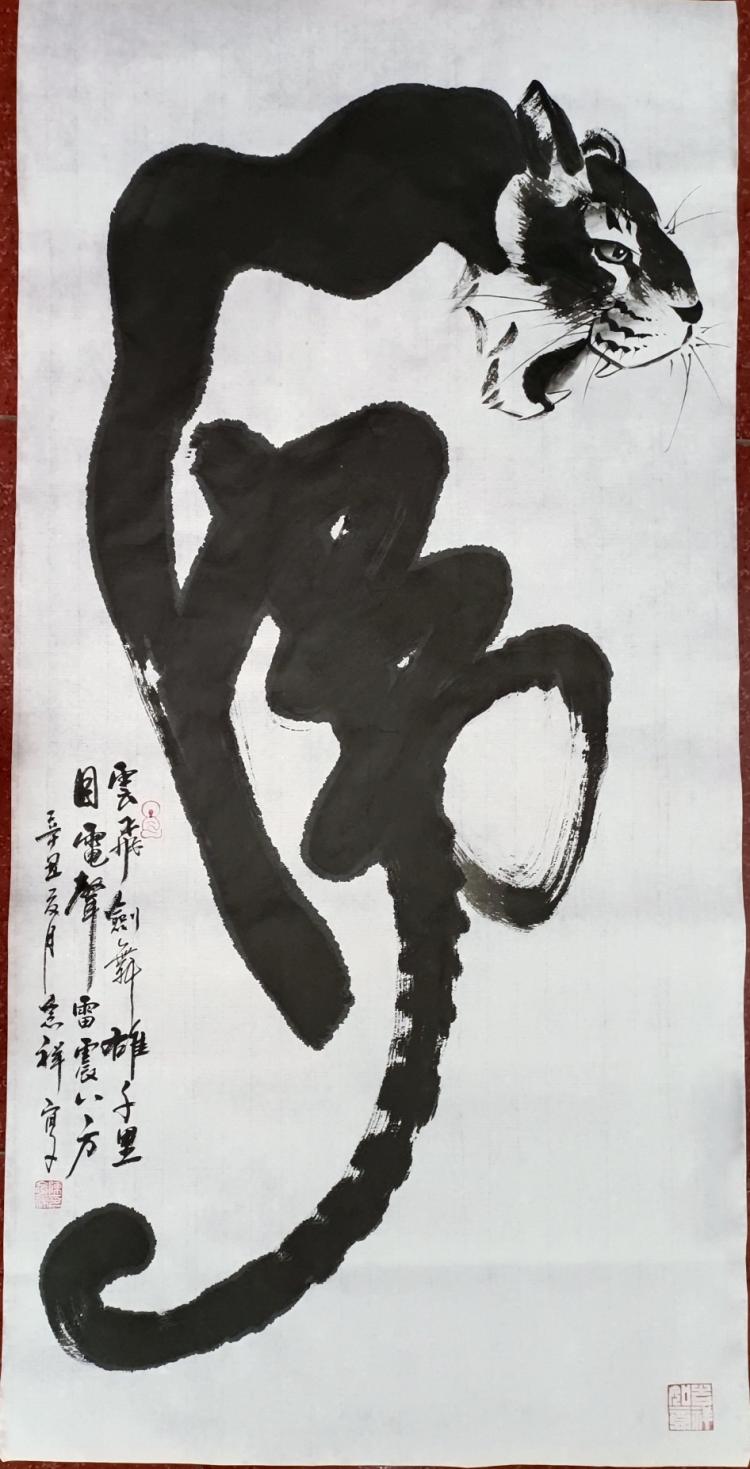 虎
雲飛劍舞雄千里
目電聲雷震八方
辛丑夏月 祥
吉祥如意